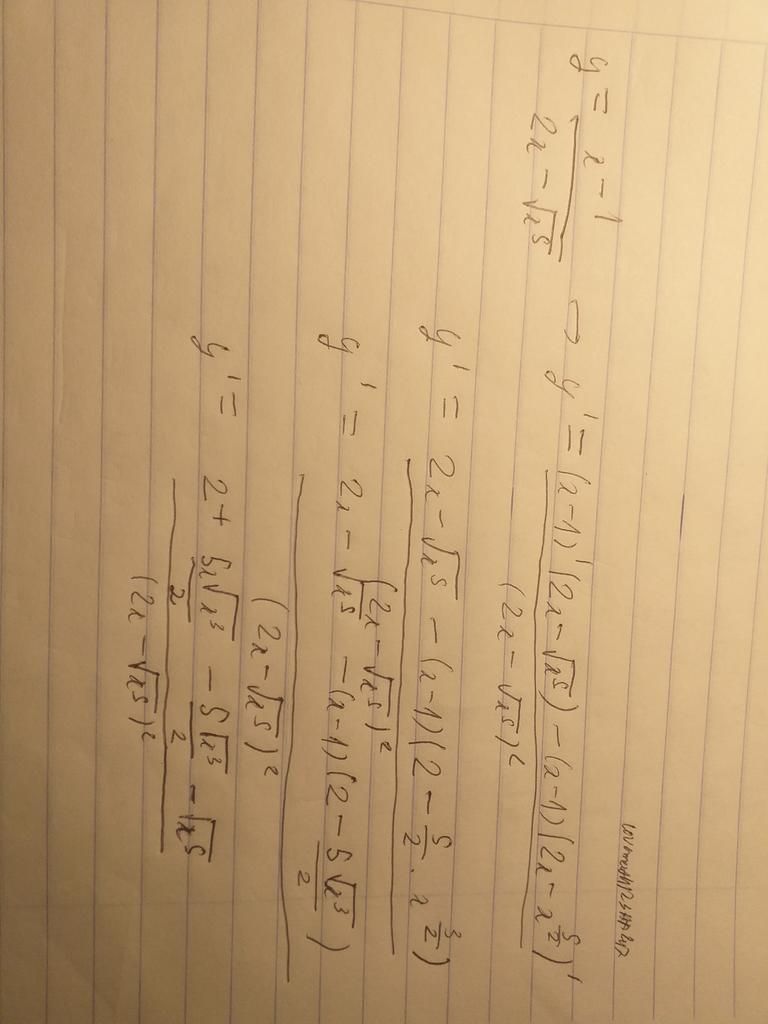 y = x - 1 / 2x - √x⁵ → y' = (x-1)'(2x - √x⁵) - (x-1)(2x - x^(5/2))' / (2x - √x⁵)²
y' = 2x - √x⁵ - (x-1)(2 - 5/2 · x^(3/2)) / (2x - √x⁵)²
y' = 2x - √x⁵ - (x-1)(2 - 5√x³/2) / (2x - √x⁵)²
y' = 2 + 5x√x³/2 - 5√x³/2 - √x⁵ / (2x - √x⁵)²